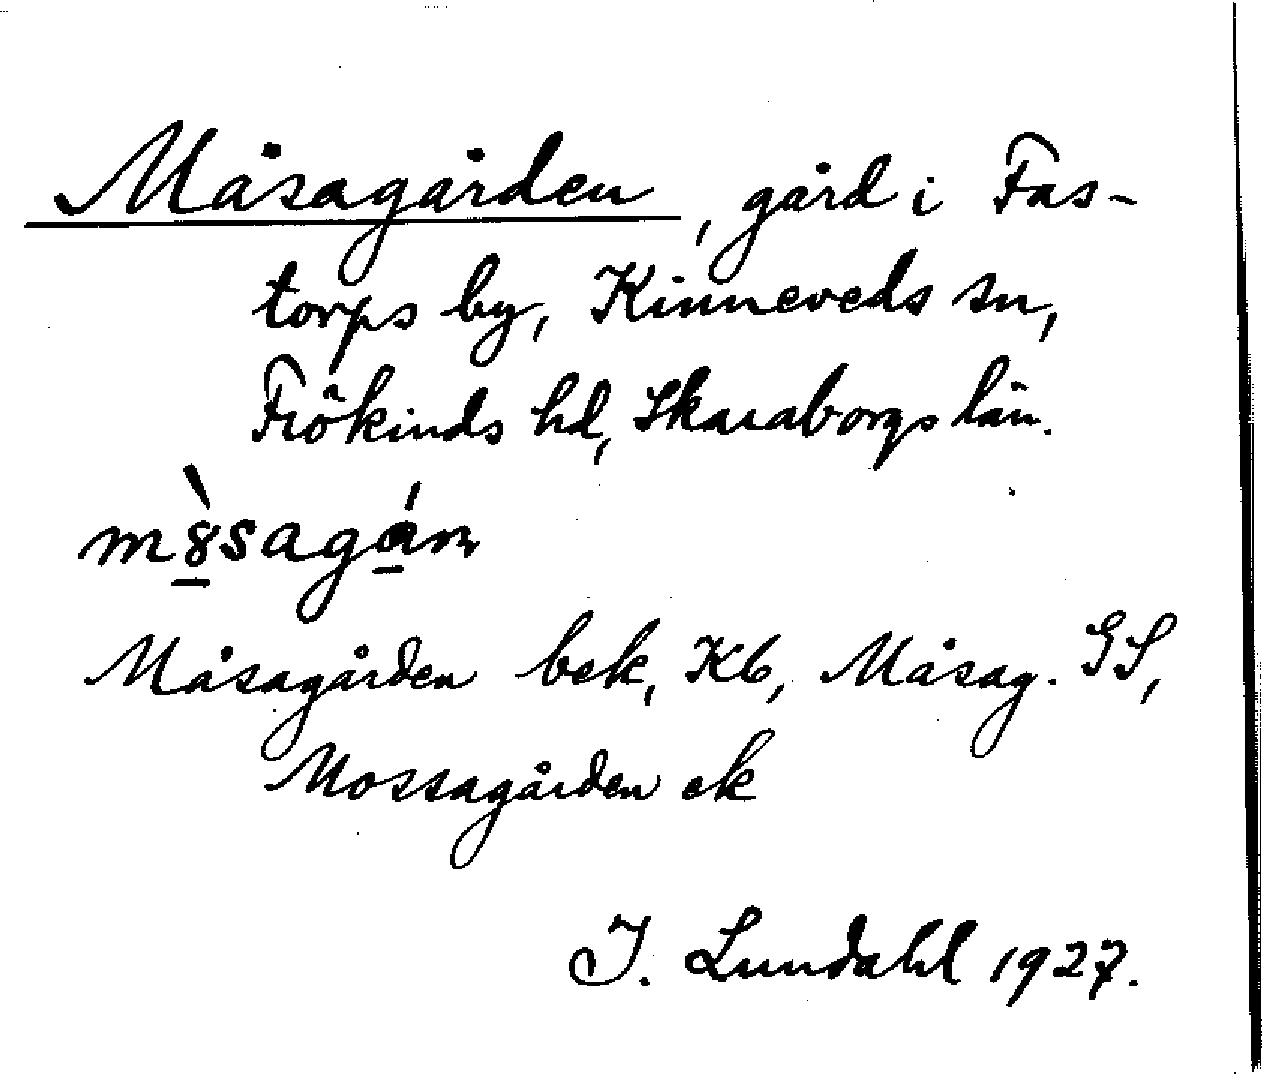 Måsagården, gård i Fas-
torps by, Kinneveds sn,
Frökinds hd, Skaraborgs län.
m8̠̀sagá̠ɳ
Måsagården bek, Kb, Måsag. GS,
Mossagården ek
I. Lundahl 1927.